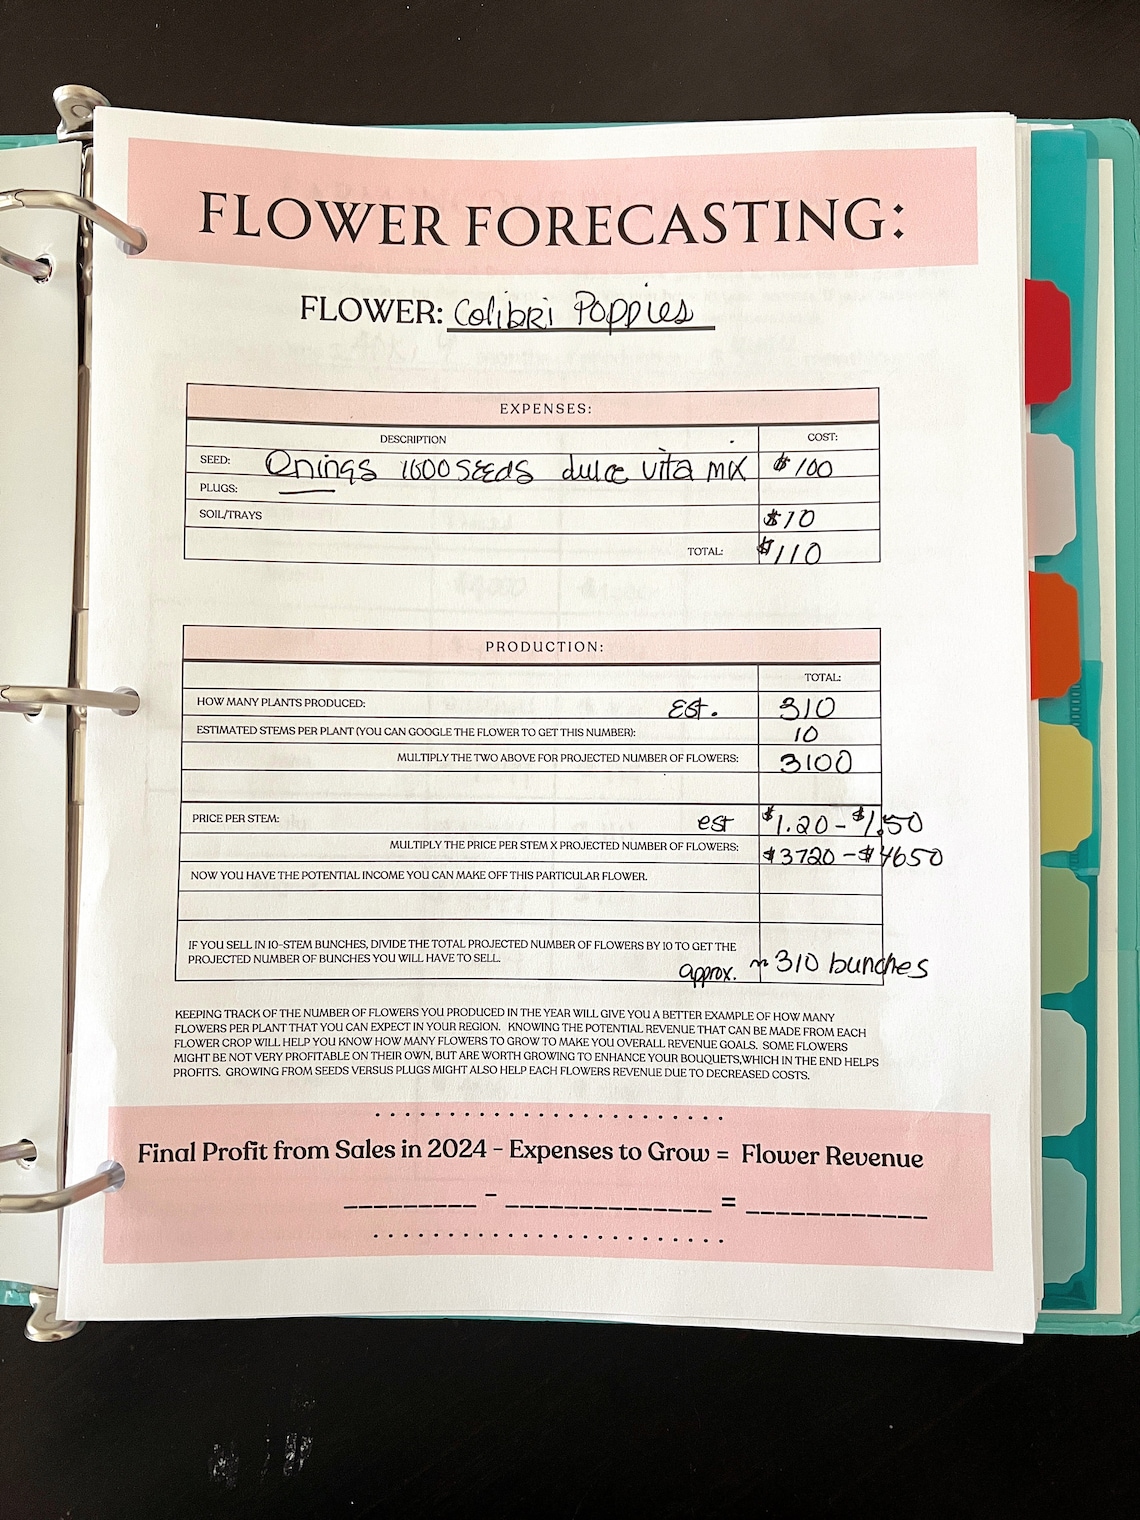 FLOWER FORECASTING:
FLOWER: Colibri Poppies
EXPENSES:
DESCRIPTION COST:
SEED: Onings 1600 seeds dulce vita mix $100
PLUGS:
SOIL/TRAYS $10
TOTAL: $110
PRODUCTION:
TOTAL:
HOW MANY PLANTS PRODUCED: Est. 310
ESTIMATED STEMS PER PLANT (YOU CAN GOOGLE THE FLOWER TO GET THIS NUMBER): 10
MULTIPLY THE TWO ABOVE FOR PROJECTED NUMBER OF FLOWERS: 3100
PRICE PER STEM: est $1.20-$1.50
MULTIPLY THE PRICE PER STEM X PROJECTED NUMBER OF FLOWERS: $3720-$4650
NOW YOU HAVE THE POTENTIAL INCOME YOU CAN MAKE OFF THIS PARTICULAR FLOWER.
IF YOU SELL IN 10-STEM BUNCHES, DIVIDE THE TOTAL PROJECTED NUMBER OF FLOWERS BY 10 TO GET THE
PROJECTED NUMBER OF BUNCHES YOU WILL HAVE TO SELL.
approx. ~310 bunches
KEEPING TRACK OF THE NUMBER OF FLOWERS YOU PRODUCED IN THE YEAR WILL GIVE YOU A BETTER EXAMPLE OF HOW MANY
FLOWERS PER PLANT THAT YOU CAN EXPECT IN YOUR REGION. KNOWING THE POTENTIAL REVENUE THAT CAN BE MADE FROM EACH
FLOWER CROP WILL HELP YOU KNOW HOW MANY FLOWERS TO GROW TO MAKE YOU OVERALL REVENUE GOALS. SOME FLOWERS
MIGHT BE NOT VERY PROFITABLE ON THEIR OWN, BUT ARE WORTH GROWING TO ENHANCE YOUR BOUQUETS,WHICH IN THE END HELPS
PROFITS. GROWING FROM SEEDS VERSUS PLUGS MIGHT ALSO HELP EACH FLOWERS REVENUE DUE TO DECREASED COSTS.
Final Profit from Sales in 2024 - Expenses to Grow = Flower Revenue
_________ - ______________ = ____________